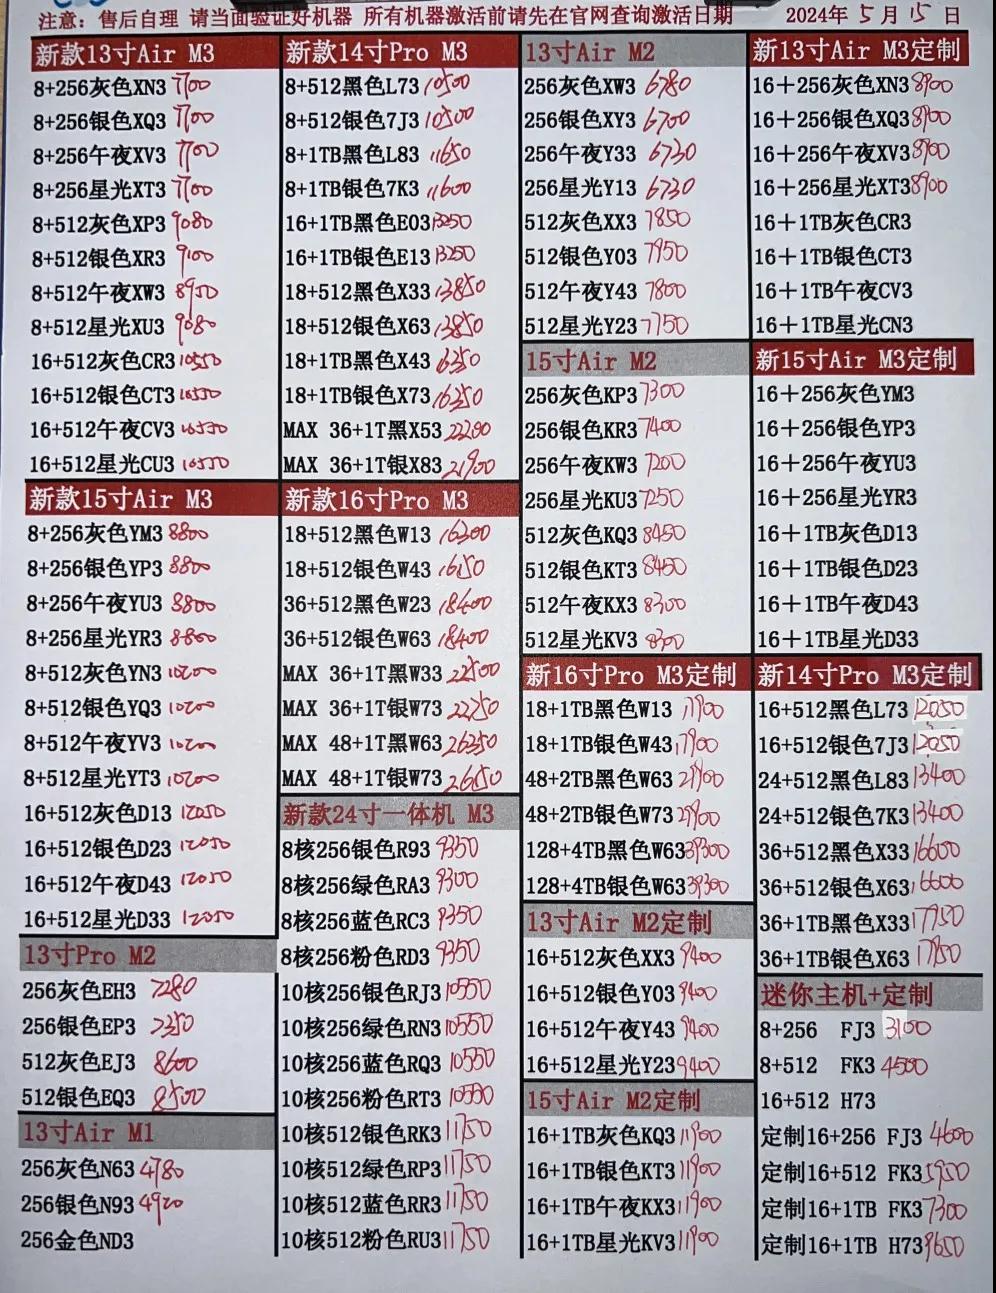 注意：售后自理 请当面验证好机器 所有机器激活前请先在官网查询激活日期 2024年5月15日
新款13寸Air M3
8+256灰色XN3 7700
8+256银色XQ3 7700
8+256午夜XV3 7700
8+256星光XT3 7700
8+512灰色XP3 9080
8+512银色XR3 9100
8+512午夜XW3 8950
8+512星光XU3 9080
16+512灰色CR3 10550
16+512银色CT3 10550
16+512午夜CV3 10550
16+512星光CU3 10550
新款15寸Air M3
8+256灰色YM3 8800
8+256银色YP3 8800
8+256午夜YU3 8800
8+256星光YR3 8800
8+512灰色YN3 10200
8+512银色YQ3 10200
8+512午夜YV3 10200
8+512星光YT3 10200
16+512灰色D13 12050
16+512银色D23 12050
16+512午夜D43 12050
16+512星光D33 12050
13寸Pro M2
256灰色EH3 7280
256银色EP3 7350
512灰色EJ3 8600
512银色EQ3 8500
13寸Air M1
256灰色N63 4780
256银色N93 4920
256金色ND3
新款14寸Pro M3
8+512黑色L73 10500
8+512银色7J3 10500
8+1TB黑色L83 11650
8+1TB银色7K3 11600
16+1TB黑色E03 13250
16+1TB银色E13 13250
18+512黑色X33 13850
18+512银色X63 13850
18+1TB黑色X43 16350
18+1TB银色X73 16350
MAX 36+1T黑X53 22200
MAX 36+1T银X83 21900
新款16寸Pro M3
18+512黑色W13 16200
18+512银色W43 16150
36+512黑色W23 18400
36+512银色W63 18400
MAX 36+1T黑W33 22500
MAX 36+1T银W73 22750
MAX 48+1T黑W63 26350
MAX 48+1T银W73 26650
新款24寸一体机 M3
8核256银色R93 9350
8核256绿色RA3 9300
8核256蓝色RC3 9350
8核256粉色RD3 9350
10核256银色RJ3 10550
10核256绿色RN3 10550
10核256蓝色RQ3 10550
10核256粉色RT3 10550
10核512银色RK3 11750
10核512绿色RP3 11750
10核512蓝色RR3 11750
10核512粉色RU3 11750
13寸Air M2
256灰色XW3 6780
256银色XY3 6700
256午夜Y33 6730
256星光Y13 6730
512灰色XX3 7850
512银色Y03 7950
512午夜Y43 7800
512星光Y23 7750
15寸Air M2
256灰色KP3 7300
256银色KR3 7400
256午夜KW3 7200
256星光KU3 7250
512灰色KQ3 8450
512银色KT3 8450
512午夜KX3 8300
512星光KV3 8300
新16寸Pro M3定制
18+1TB黑色W13 17900
18+1TB银色W43 17900
48+2TB黑色W63 29900
48+2TB银色W73 29900
128+4TB黑色W63 39300
128+4TB银色W63 39300
13寸Air M2定制
16+512灰色XX3 9400
16+512银色Y03 9400
16+512午夜Y43 9400
16+512星光Y23 9400
15寸Air M2定制
16+1TB灰色KQ3 11900
16+1TB银色KT3 11900
16+1TB午夜KX3 11900
16+1TB星光KV3 11900
新13寸Air M3定制
16＋256灰色XN3 8900
16＋256银色XQ3 8900
16＋256午夜XV3 8900
16＋256星光XT3 8900
16＋1TB灰色CR3
16＋1TB银色CT3
16＋1TB午夜CV3
16＋1TB星光CN3
新15寸Air M3定制
16＋256灰色YM3
16＋256银色YP3
16＋256午夜YU3
16＋256星光YR3
16＋1TB灰色D13
16＋1TB银色D23
16＋1TB午夜D43
16＋1TB星光D33
新14寸Pro M3定制
16+512黑色L73 12050
16+512银色7J3 12050
24+512黑色L83 13400
24+512银色7K3 13400
36+512黑色X33 16600
36+512银色X63 16600
36+1TB黑色X33 17950
36+1TB银色X63 17850
迷你主机+定制
8+256 FJ3 3100
8+512 FK3 4500
16+512 H73
定制16+256 FJ3 4600
定制16+512 FK3 5950
定制16+1TB FK3 7300
定制16+1TB H73 9650